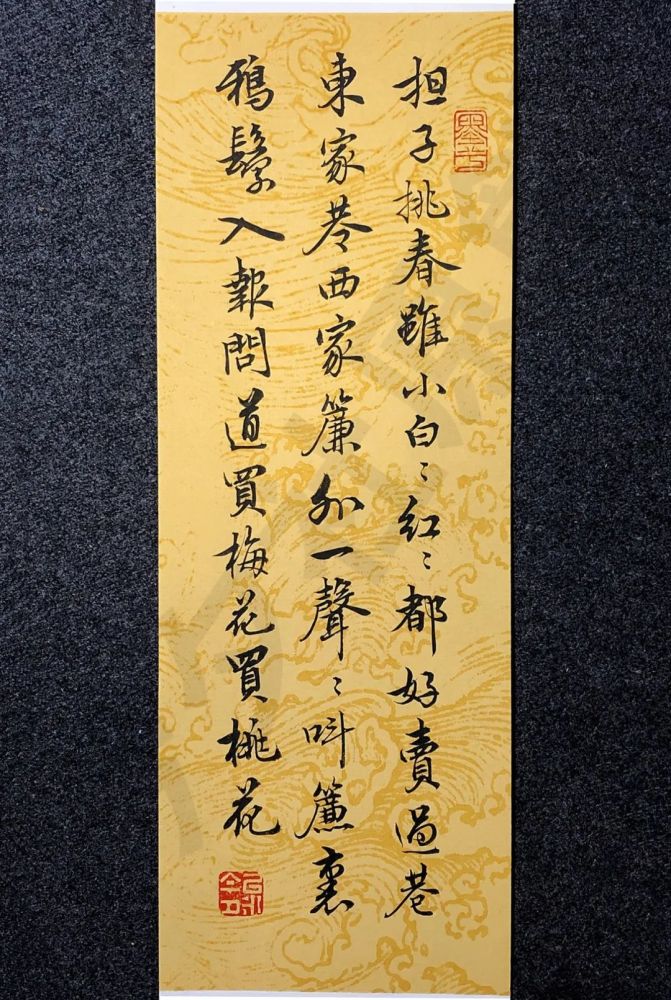 担子挑春雖小白〻紅〻都好賣過巷
東家巷西家簾外一聲〻叫簾裏
鴉鬟入報問道買梅花買桃花